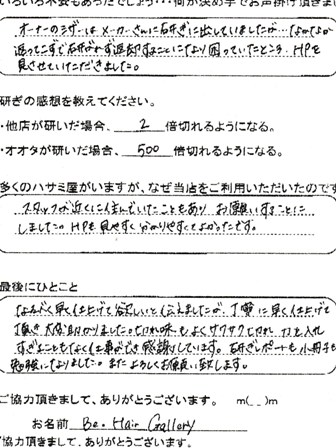 いろいろ不安もあったでしょう…何が決め手でお声掛け頂きまし
オーナーのシザーはメーカーさんに研ぎに出していましたが…なかなか
返ってこず研がれず返却することになり困っていたところ、HPを
見させていただきました。
研ぎの感想を教えてください。
・他店が研いだ場合、 2 倍切れるようになる。
・オオタが研いだ場合、 500 倍切れるようになる。
多くのハサミ屋がいますが、なぜ当店をご利用いただいたのです
スタッフが近くに住んでいたこともあり お願いすることに
しました。HPも見やすく分かりやすくてよかったです。
最後にひとこと
なるべく早く仕上げて欲しいと伝えましたが、丁寧に早く仕上げて
頂き大変助かりました。切れ味もよくサクサク切れ 力を入れ
すぎることもなく仕事ができ感謝しています。研ぎレポートも小冊子も
勉強になりました。またよろしくお願い致します。
ご協力頂きまして、ありがとうございます。 m(_ _)m
お名前 Be. Hair Gallery
ご協力頂きまして、ありがとうございます。